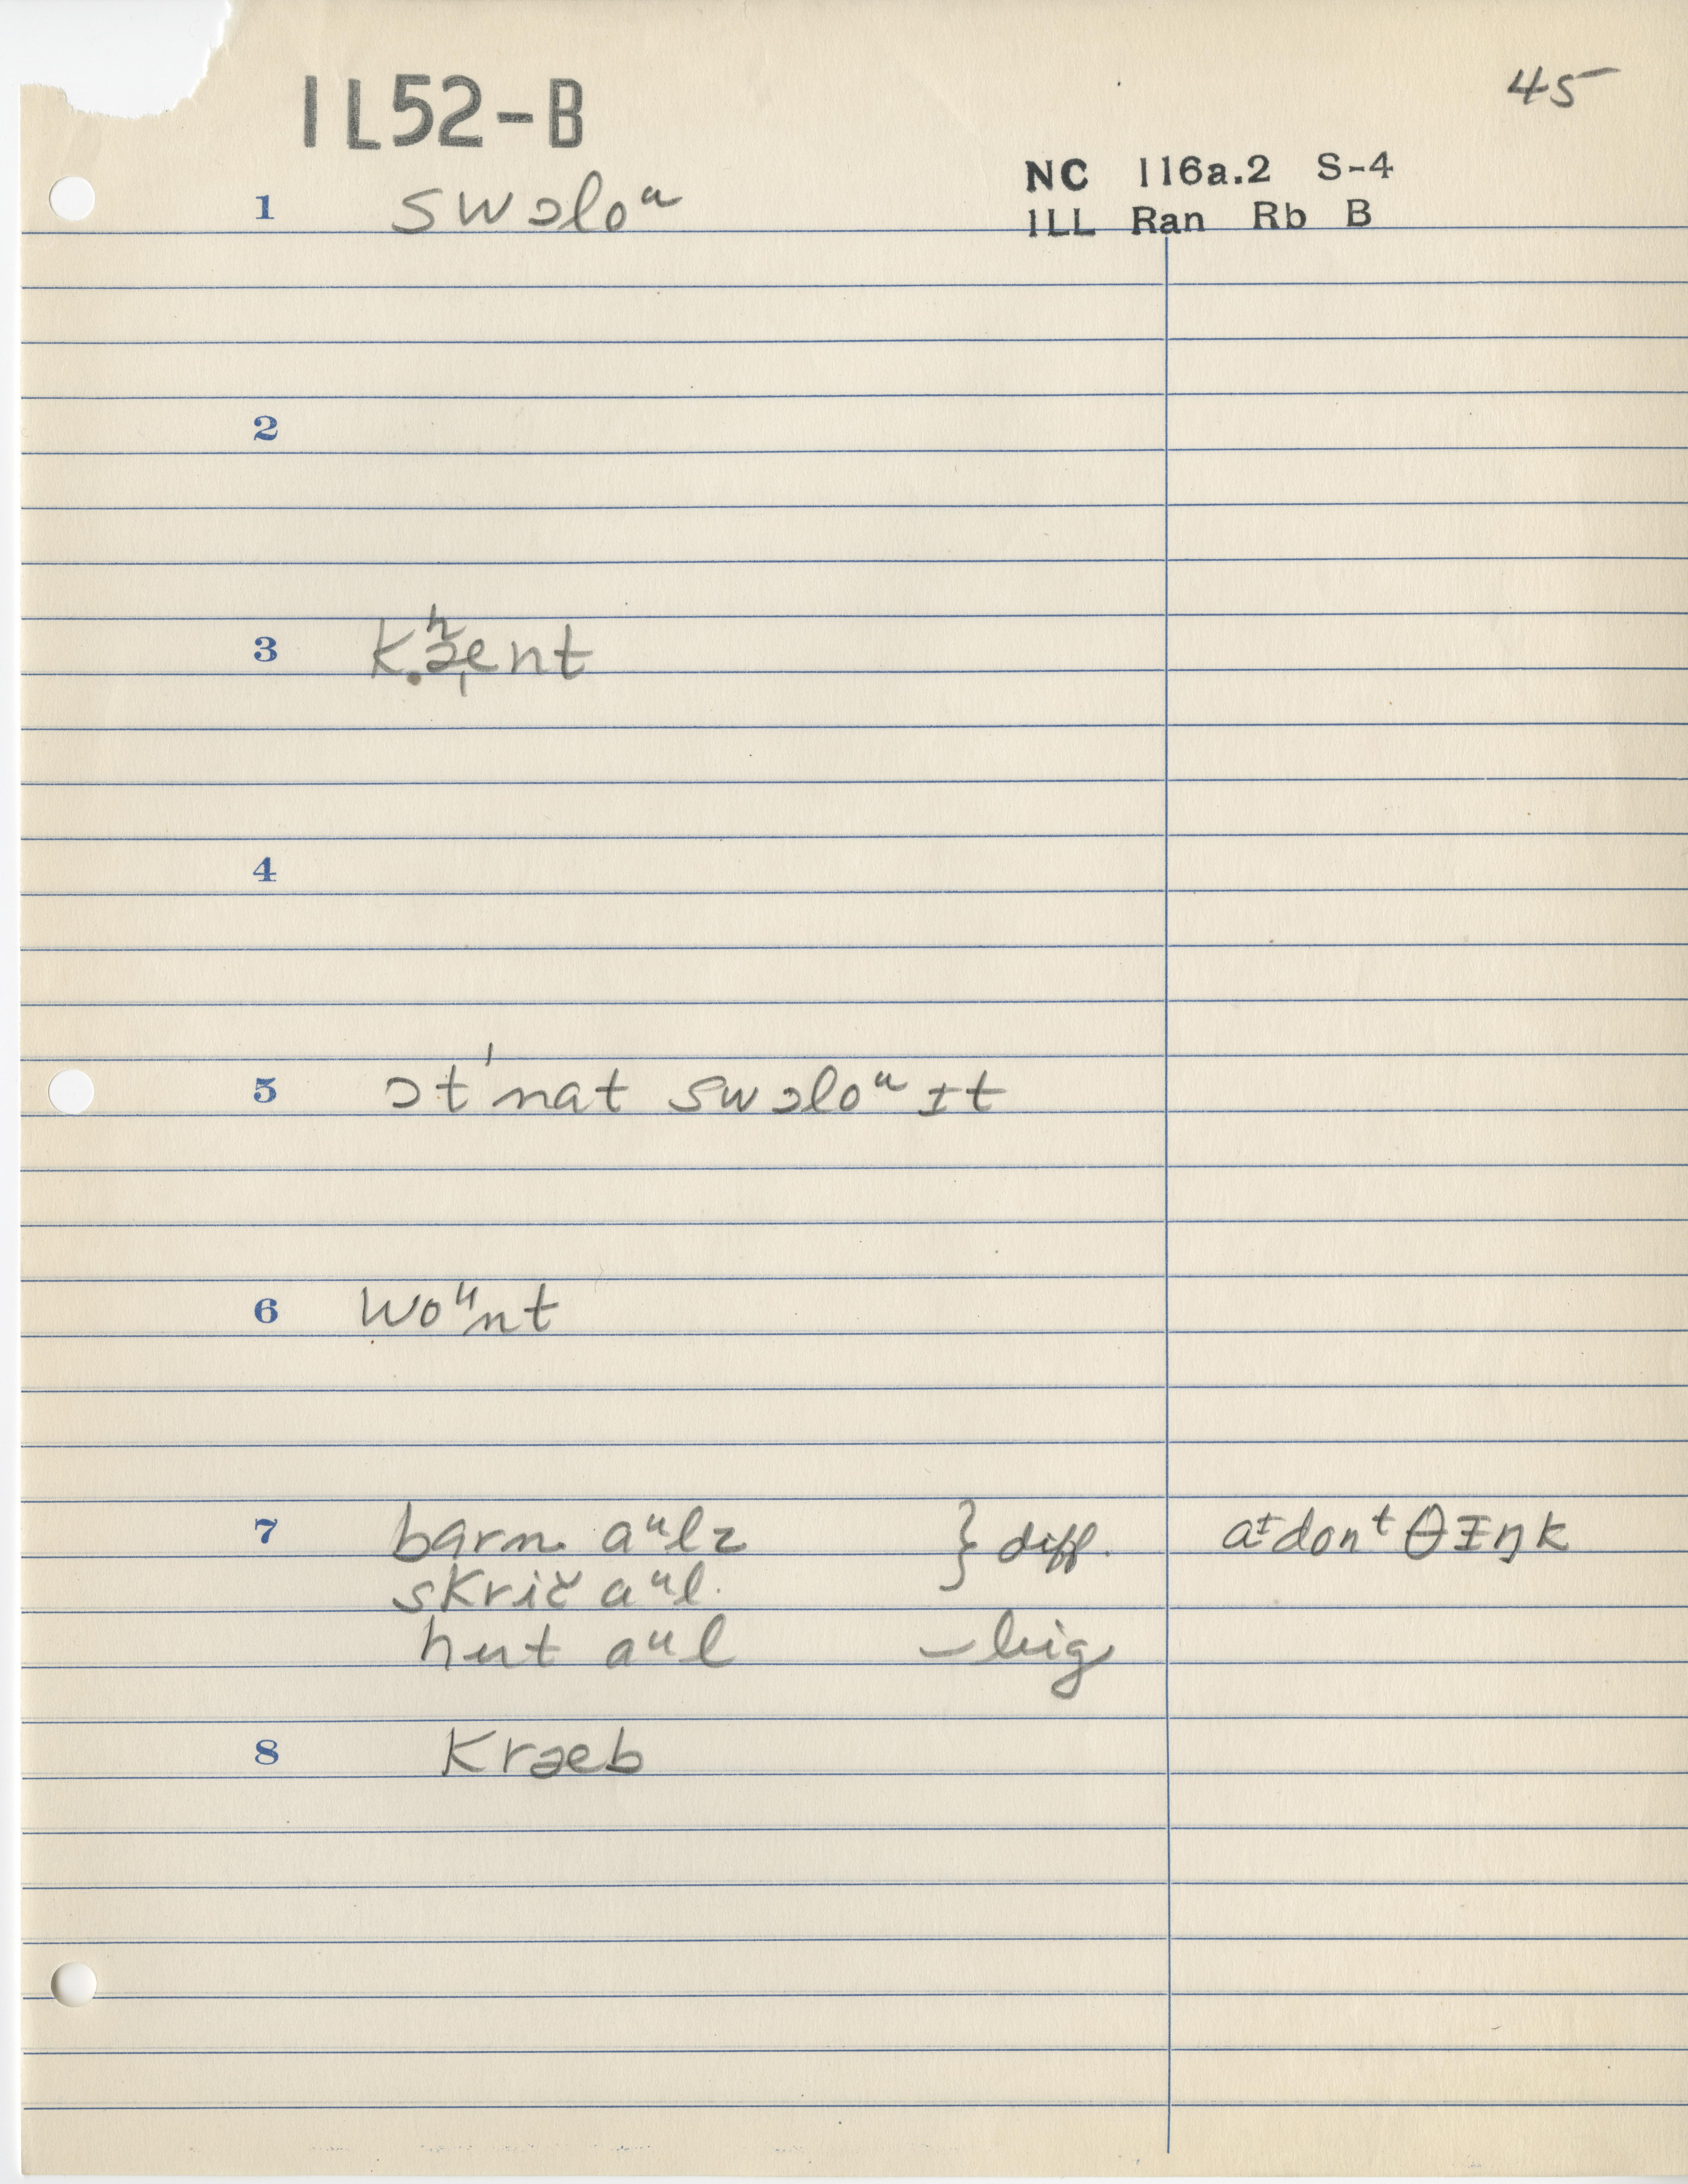 IL52-B
45
NC 116a.2 S-4
ILL Ran Rb B
1 swɔloᵘ
2
3 kʰænt
4
5 ɔt'nat swɔloᵘ ɪt
6 woᵘnt
7 barn aᵘlz } diff. aᶦdonᵗ θɪŋk
skrič aᵘl
hut aᵘl – big
8 Kræb